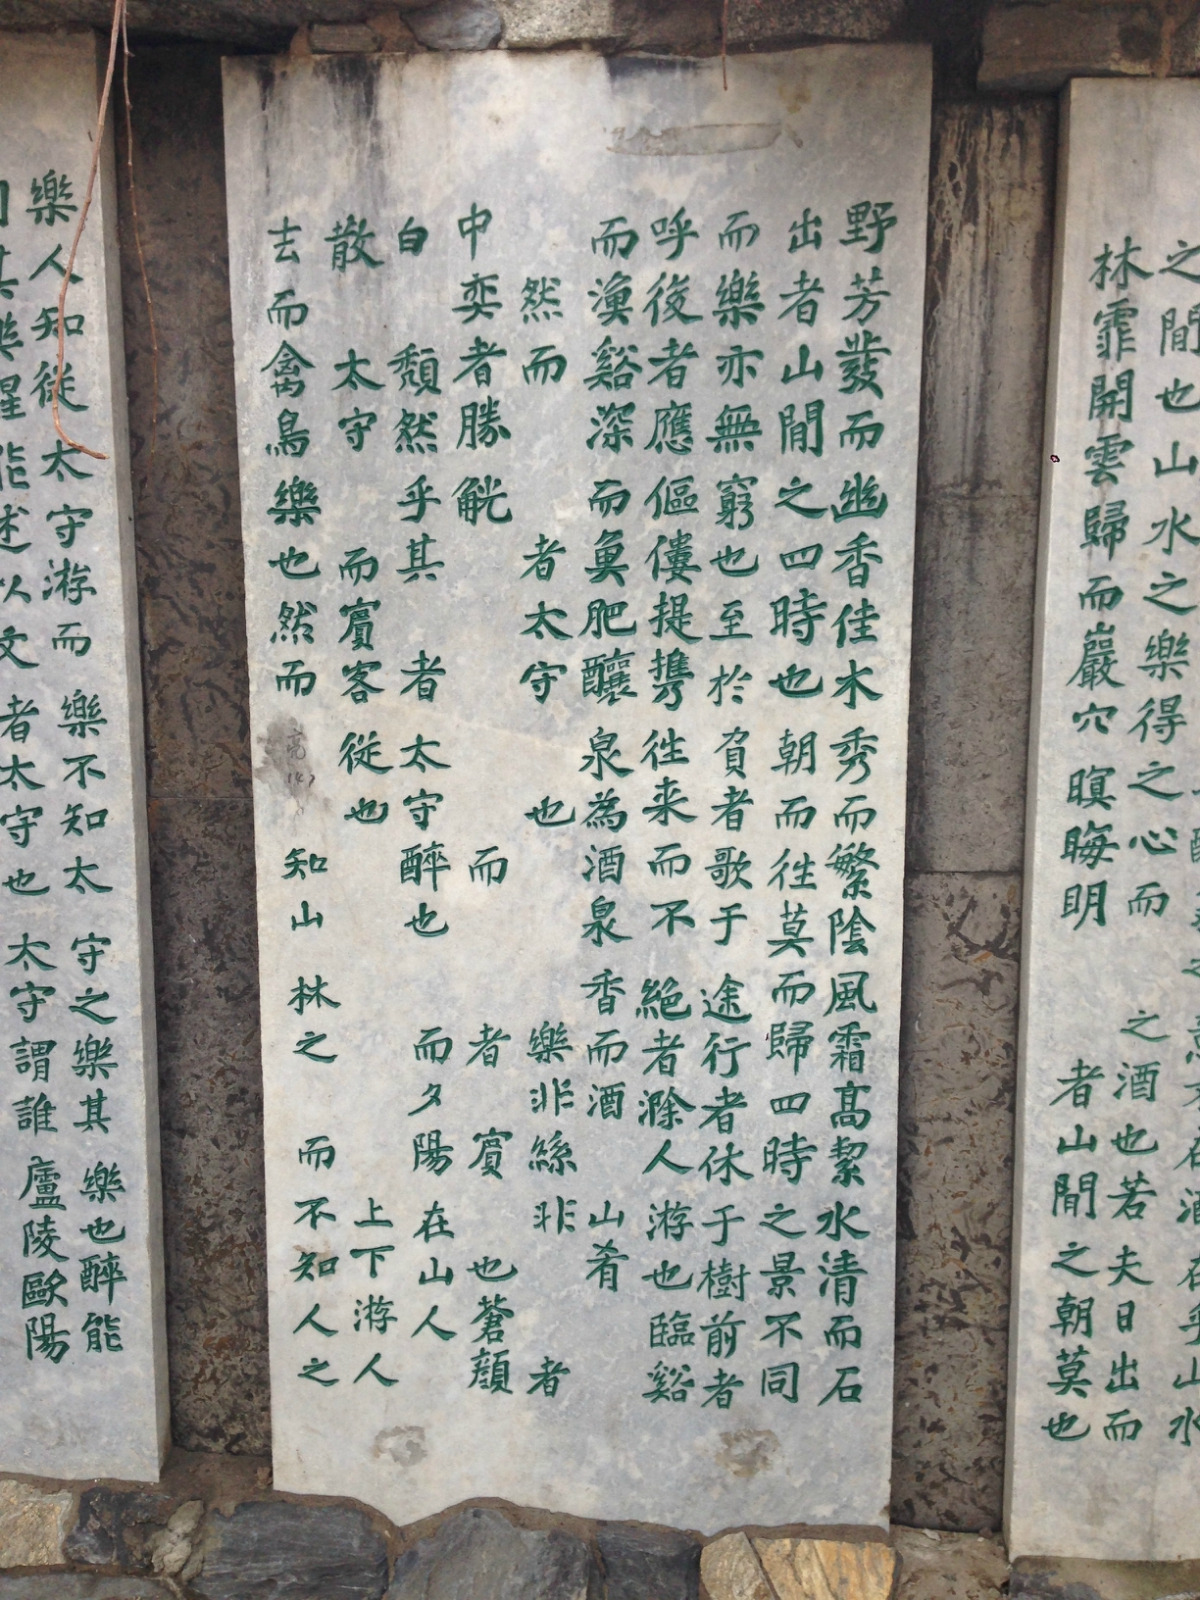 在酒在乎山水
之間也山水之樂得之心而 之酒也若夫日出而
林霏開雲歸而巖穴暝晦明 者山間之朝莫也
野芳發而幽香佳木秀而繁陰風霜高絜水清而石
出者山間之四時也朝而往莫而歸四時之景不同
而樂亦無窮也至於負者歌于途行者休于樹前者
呼後者應傴僂提攜往来而不絕者滁人游也臨谿
而漁谿深而魚肥釀泉為酒泉香而酒 山肴
然而 者太守 也 樂非絲非 者
中奕者勝觥 而 者 賓 也蒼顏
白 頹然乎其 者太守醉也 而夕陽在山人
散 太守 而賓客從也 上下游人
去而禽鳥樂也然而 知山林之 而不知人之
樂人知從太守游而 樂不知太守之樂其樂也醉能
同其樂醒能述以文者太守也太守謂誰廬陵歐陽